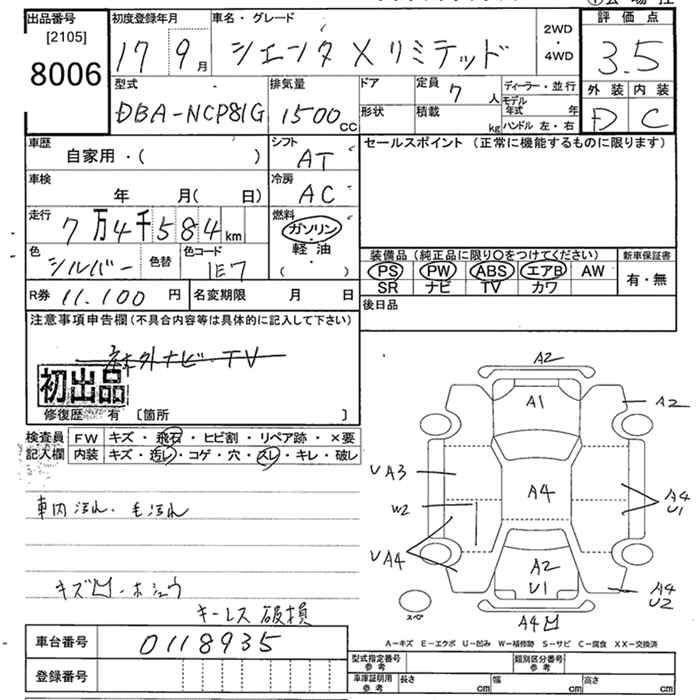 出品番号
[2105]
8006
初度登録年月
17 9月
車名・グレード
シエンタ Xリミテッド
2WD
・
4WD
評価点
3.5
外装 内装
D C
型式
DBA-NCP81G
排気量
1500 CC
ドア
形状
定員 7 人
積載 kg
ディーラー・並行
モデル年式 年
ハンドル 左・右
車歴
自家用・( )
シフト
AT
セールスポイント (正常に機能するものに限ります)
車検
年 月( 日)
冷房
AC
走行
7万4千584km
燃料
ガソリン
・
軽油
( )
色
シルバー
色替
色コード
1E7
装備品 (純正品に限り○をつけてください)
PS PW ABS エアB AW
SR ナビ TV カワ
新車保証書
有・無
R券 11.100 円
名変期限 月 日
後日品
注意事項申告欄(不具合内容等は具体的に記入して下さい)
社外ナビ・TV
初出品
修復歴 有 [箇所 ]
検査員
記入欄
FW キズ・飛石・ヒビ割・リペア跡・×要
内装 キズ・汚レ・コゲ・穴・スレ・キレ・破レ
車内汚れ・毛汚れ
キズ凹・ホシュウ
キーレス破損
A2
A1
A2
UA3
A4
A4
U1
W2
UA4
A2
U1
A4
U2
スペア
A4凹
A-キズ E-エクボ U-凹み W-補修跡 S-サビ C-腐食 XX-交換済
車台番号
0118935
登録番号
型式指定番号
参考
類別区分番号
参考
車庫証明用
参考
長さ cm
幅 cm
高さ cm